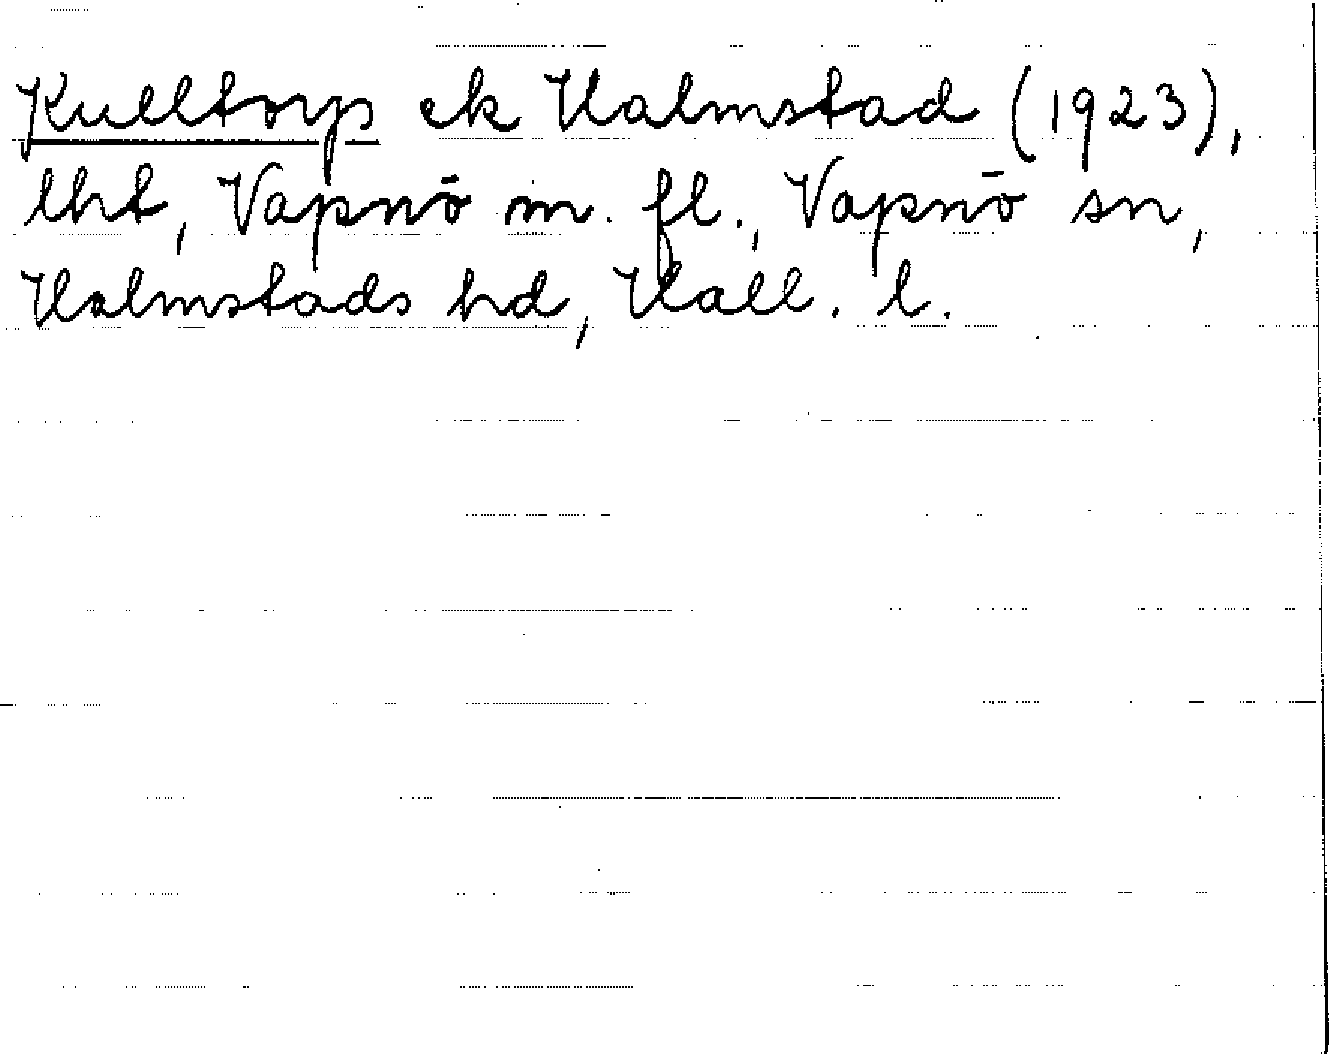 Kulltorp ek Halmstad (1923),
lht, Vapnö m. fl., Vapnö sn,
Halmstads hd, Hall. l.